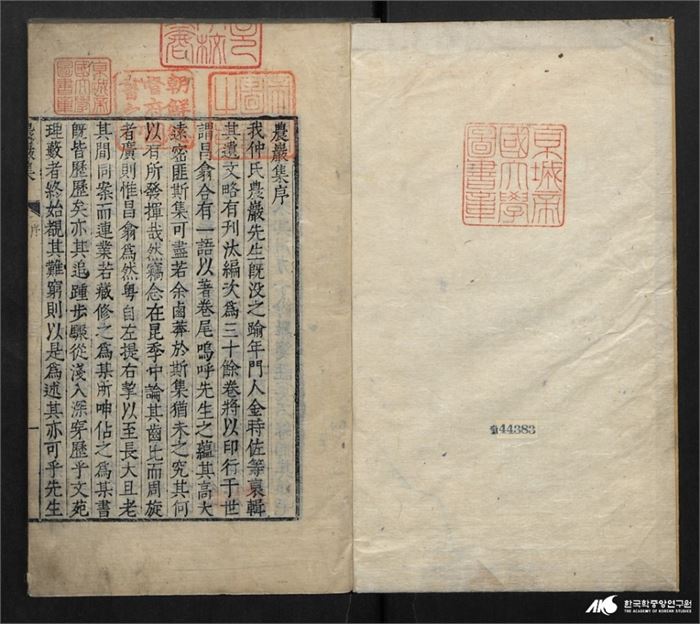 京城帝
國大學
圖書章
44383
京城帝
國大學
圖書章
朝鮮
督府
農巖集序
我仲氏農巖先生旣没之踰年門人金時佐等裒輯
其遺文略有刊汰編次爲三十餘卷將以印行于世
謂昌翕合有一語以著卷尾嗚呼先生之蘊其高大
遠密匪斯集可盡若余鹵莽於斯集猶未之究其何
以有所發揮哉然竊念在昆季中論其齒比而周旋
者廣則惟昌翕爲然粤自左提右挈以至長大且老
其間同案而連業若藏修之爲某所呻佔之爲某書
旣皆歷歷矣亦其追踵步驟從淺入深穿歷乎文苑
理藪者終始覩其難窮則以是爲述其亦可乎先生
農巖集
序
一
AKS 한국학중앙연구원
THE ACADEMY OF KOREAN STUDIES